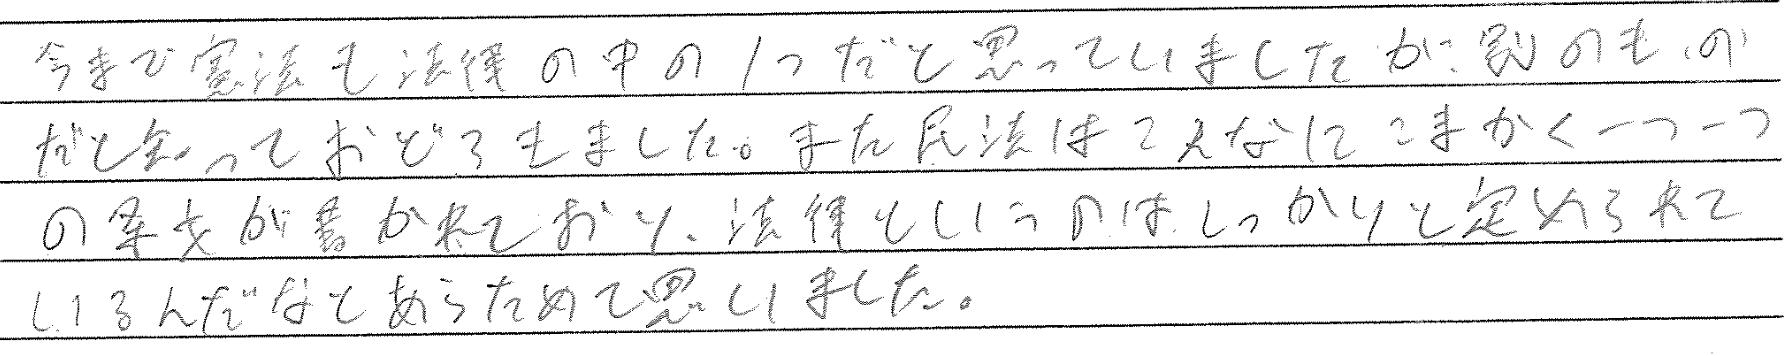 今まで憲法も法律の中の1つだと思っていましたが、別のもの
だと知っておどろきました。また民法はこんなにこまかく一つ一つ
の条文が書かれており、法律というのはしっかりと定められて
いるんだなとあらためて思いました。